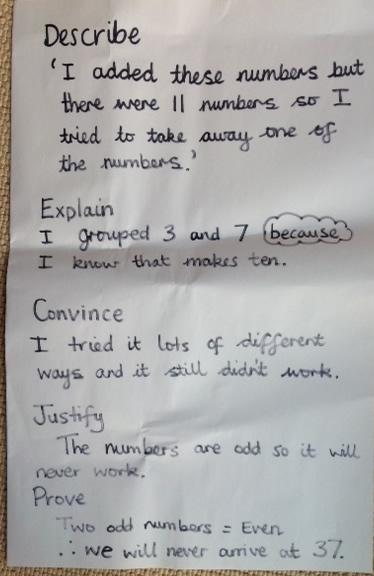 Describe
'I added these numbers but
there were 11 numbers so I
tried to take away one of
the numbers.'
Explain
I grouped 3 and 7 because
I know that makes ten.
Convince
I tried it lots of different
ways and it still didn't work.
Justify
The numbers are odd so it will
never work.
Prove
Two odd numbers = Even
∴ we will never arrive at 37.